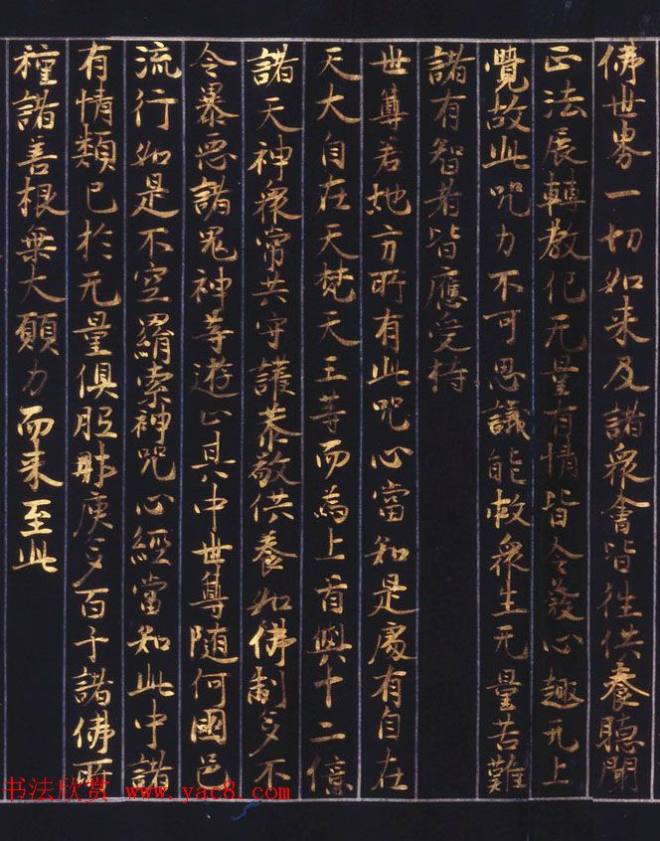 佛世界一切如来及諸衆會皆往供養聽聞
正法展轉教化无量有情皆令發心趣无上
覺故此咒力不可思議能救衆生无量苦難
諸有智者皆應受持
世尊若地方所有此咒心當知是處有自在
天大自在天梵天王等而為上首與十二億
諸天神衆常共守護恭敬供養如佛制多不
令暴惡諸鬼神等遊止其中世尊随何國邑
流行如是不空羂索神咒心經當知此中諸
有情類已於无量俱胝那庾多百千諸佛所
種諸善根乗大願力而来至此
书法欣赏 www.yac8.com